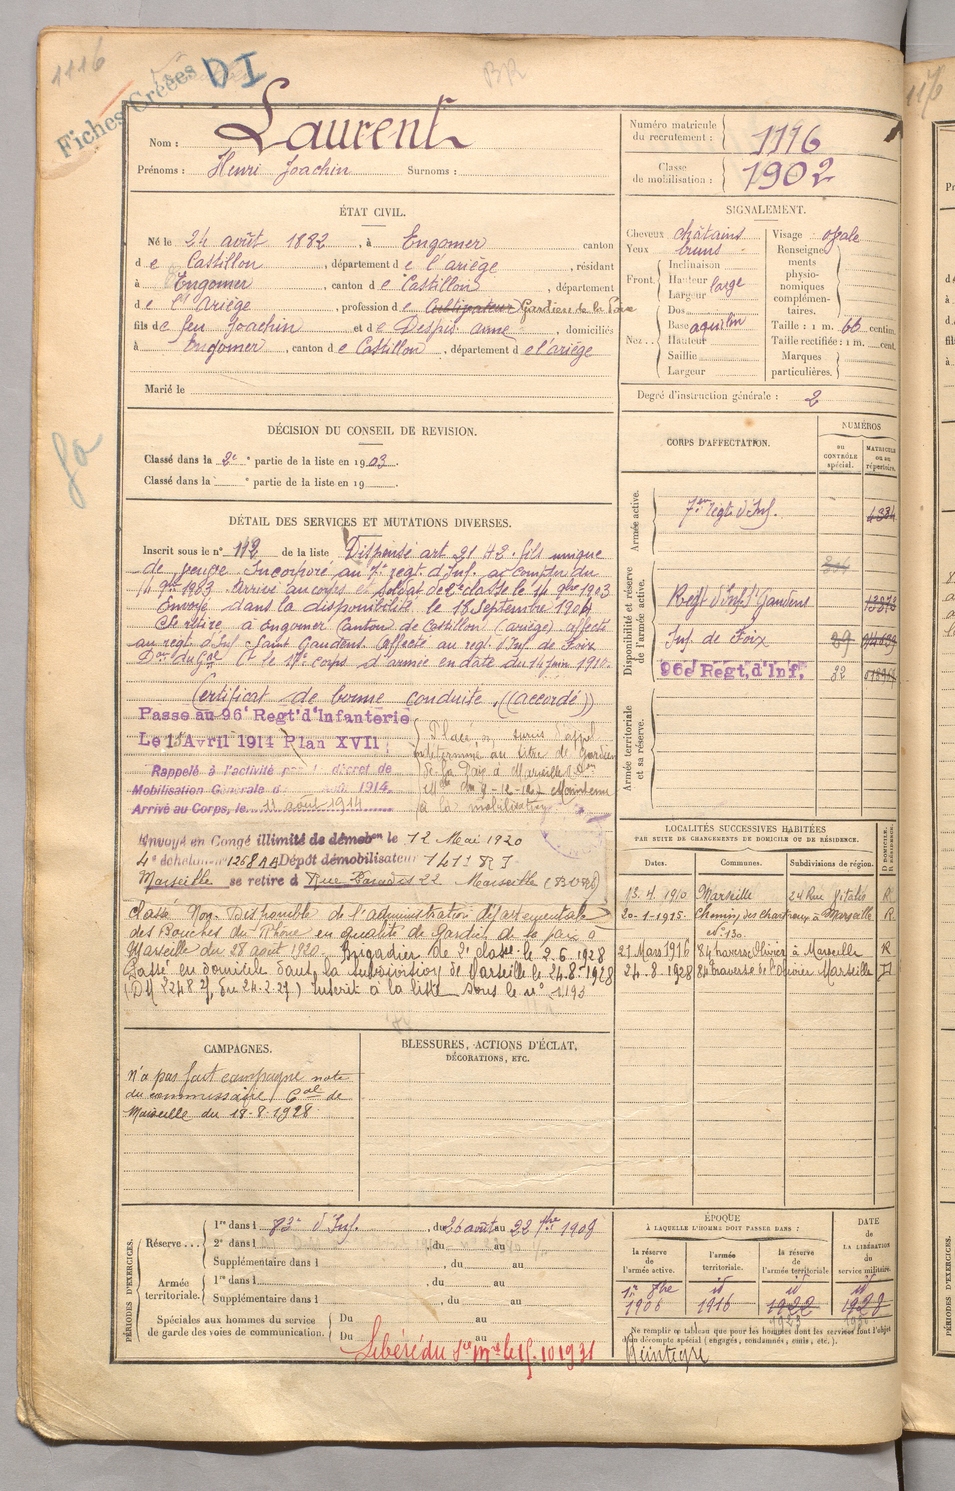 1116
Fiches Créées
DI
BR
Nom : Laurent
Prénoms : Henri Joachin Surnoms :
Numéro matricule du recrutement : 1116
Classe de mobilisation : 1902
ÉTAT CIVIL.
Né le 24 août 1882, à Engomer canton
de Castillon, département de l'ariège, résidant
à Engomer, canton de Castillon, département
de l'Ariège, profession de Gardien de la Paix
fils de feu Joachin et de Despis anne, domiciliés
à Engomer, canton de Castillon, département de l'ariège
Marié le
SIGNALEMENT.
Cheveux châtains
Yeux bruns
Front. Inclinaison
Hauteur
Largeur large
Nez. Dos
Base aquilin
Hauteur
Saillie
Largeur
Visage ovale
Renseignements physionomiques complémentaires.
Taille : 1 m. 66 centim.
Taille rectifiée : 1 m. cent.
Marques particulières.
Degré d'instruction générale : 2
DÉCISION DU CONSEIL DE REVISION.
Classé dans la 2e partie de la liste en 1903.
Classé dans la e partie de la liste en 19
CORPS D'AFFECTATION.
NUMÉROS
au CONTRÔLE spécial.
MATRICULE ou au répertoire.
Armée active.
7e regt d'Inf.
Disponibilité et réserve de l'armée active.
Regt d'Inf St Gaudens
Inf. de Foix
96e Regt. d'Inf. 32
Armée territoriale et sa réserve.
DÉTAIL DES SERVICES ET MUTATIONS DIVERSES.
Inscrit sous le n° 112 de la liste Dispensé art 21 fils unique
de veuve. Incorporé au 7e regt. d'Inf. à compter du
14 9bre 1903 Arrivé au corps et soldat de 2e classe le 14 9bre 1903
Envoyé dans la disponibilité le 18 Septembre 1904
Se retire à Engomer Canton de Castillon (ariège) affecté
au regt. d'Inf Saint Gaudens. Affecté au regt. d'Inf. de Foix
le 17e corps d'armée en date du 14 juin 1910.
Certificat de bonne conduite ((accordé))
Passé au 96e Regt d'Infanterie
Le 1er Avril 1914 Plan XVII
Rappelé à l'activité décret de
Mobilisation Générale du août 1914.
Arrivé au Corps, le 11 août 1914
Placé en sursis d'appel
indéterminé au titre de Gardien
de la Paix à Marseille
du 8-12-12. Maintenu
à la mobilisation
Envoyé en Congé illimité de démobon le 12 Mai 1920
4e échelon Dépôt démobilisateur 141e RI
Marseille se retire à Rue Paradis 22 Marseille (B d R)
Classé Non-Disponible de l'administration départementale
des Bouches du Rhône en qualité de Gardien de la paix à
Marseille du 28 août 1920. Brigadier de 2e classe le 2.6.1928
Passé en domicile dans la subdivision de Marseille le 24.8.1928
(DM 2248 du 24.2.27) inscrit à la liste sous le n° 1193
LOCALITÉS SUCCESSIVES HABITÉES
PAR SUITE DE CHANGEMENTS DE DOMICILE OU DE RÉSIDENCE.
Dates. Communes. Subdivisions de région. D DOMICILE. R RÉSIDENCE.
13.4.1910 Marseille 24 Rue Vitalis R
20-1-1915 Chemin des chartreux à Marseille R
n° 130.
21 Mars 1916 84 traverse Olivier à Marseille R
24-8-1928 84 traverse de l'Olivier Marseille D
CAMPAGNES.
n'a pas fait campagne note
du commissaire Cal de
Marseille du 18-8-1928
BLESSURES, ACTIONS D'ÉCLAT,
DÉCORATIONS, ETC.
PÉRIODES D'EXERCICES.
Réserve...
1re dans l 83e d'Inf., du 26 août au 22 7bre 1908
2e dans l , du au
Supplémentaire dans l , du au
Armée territoriale.
1re dans l , du au
Supplémentaire dans l , du au
Spéciales aux hommes du service de garde des voies de communication.
Du au
Du au
Libéré du Sce Mre le 15.10 1931
ÉPOQUE
À LAQUELLE L'HOMME DOIT PASSER DANS :
la réserve de l'armée active.
l'armée territoriale.
la réserve de l'armée territoriale
DATE de LA LIBÉRATION du service militaire.
1er 8bre id id id
1906 1916 1922 1928
Ne remplir ce tableau que pour les hommes dont les services font l'objet
d'un décompte spécial (engagés, condamnés, omis, etc.).
Réintégré